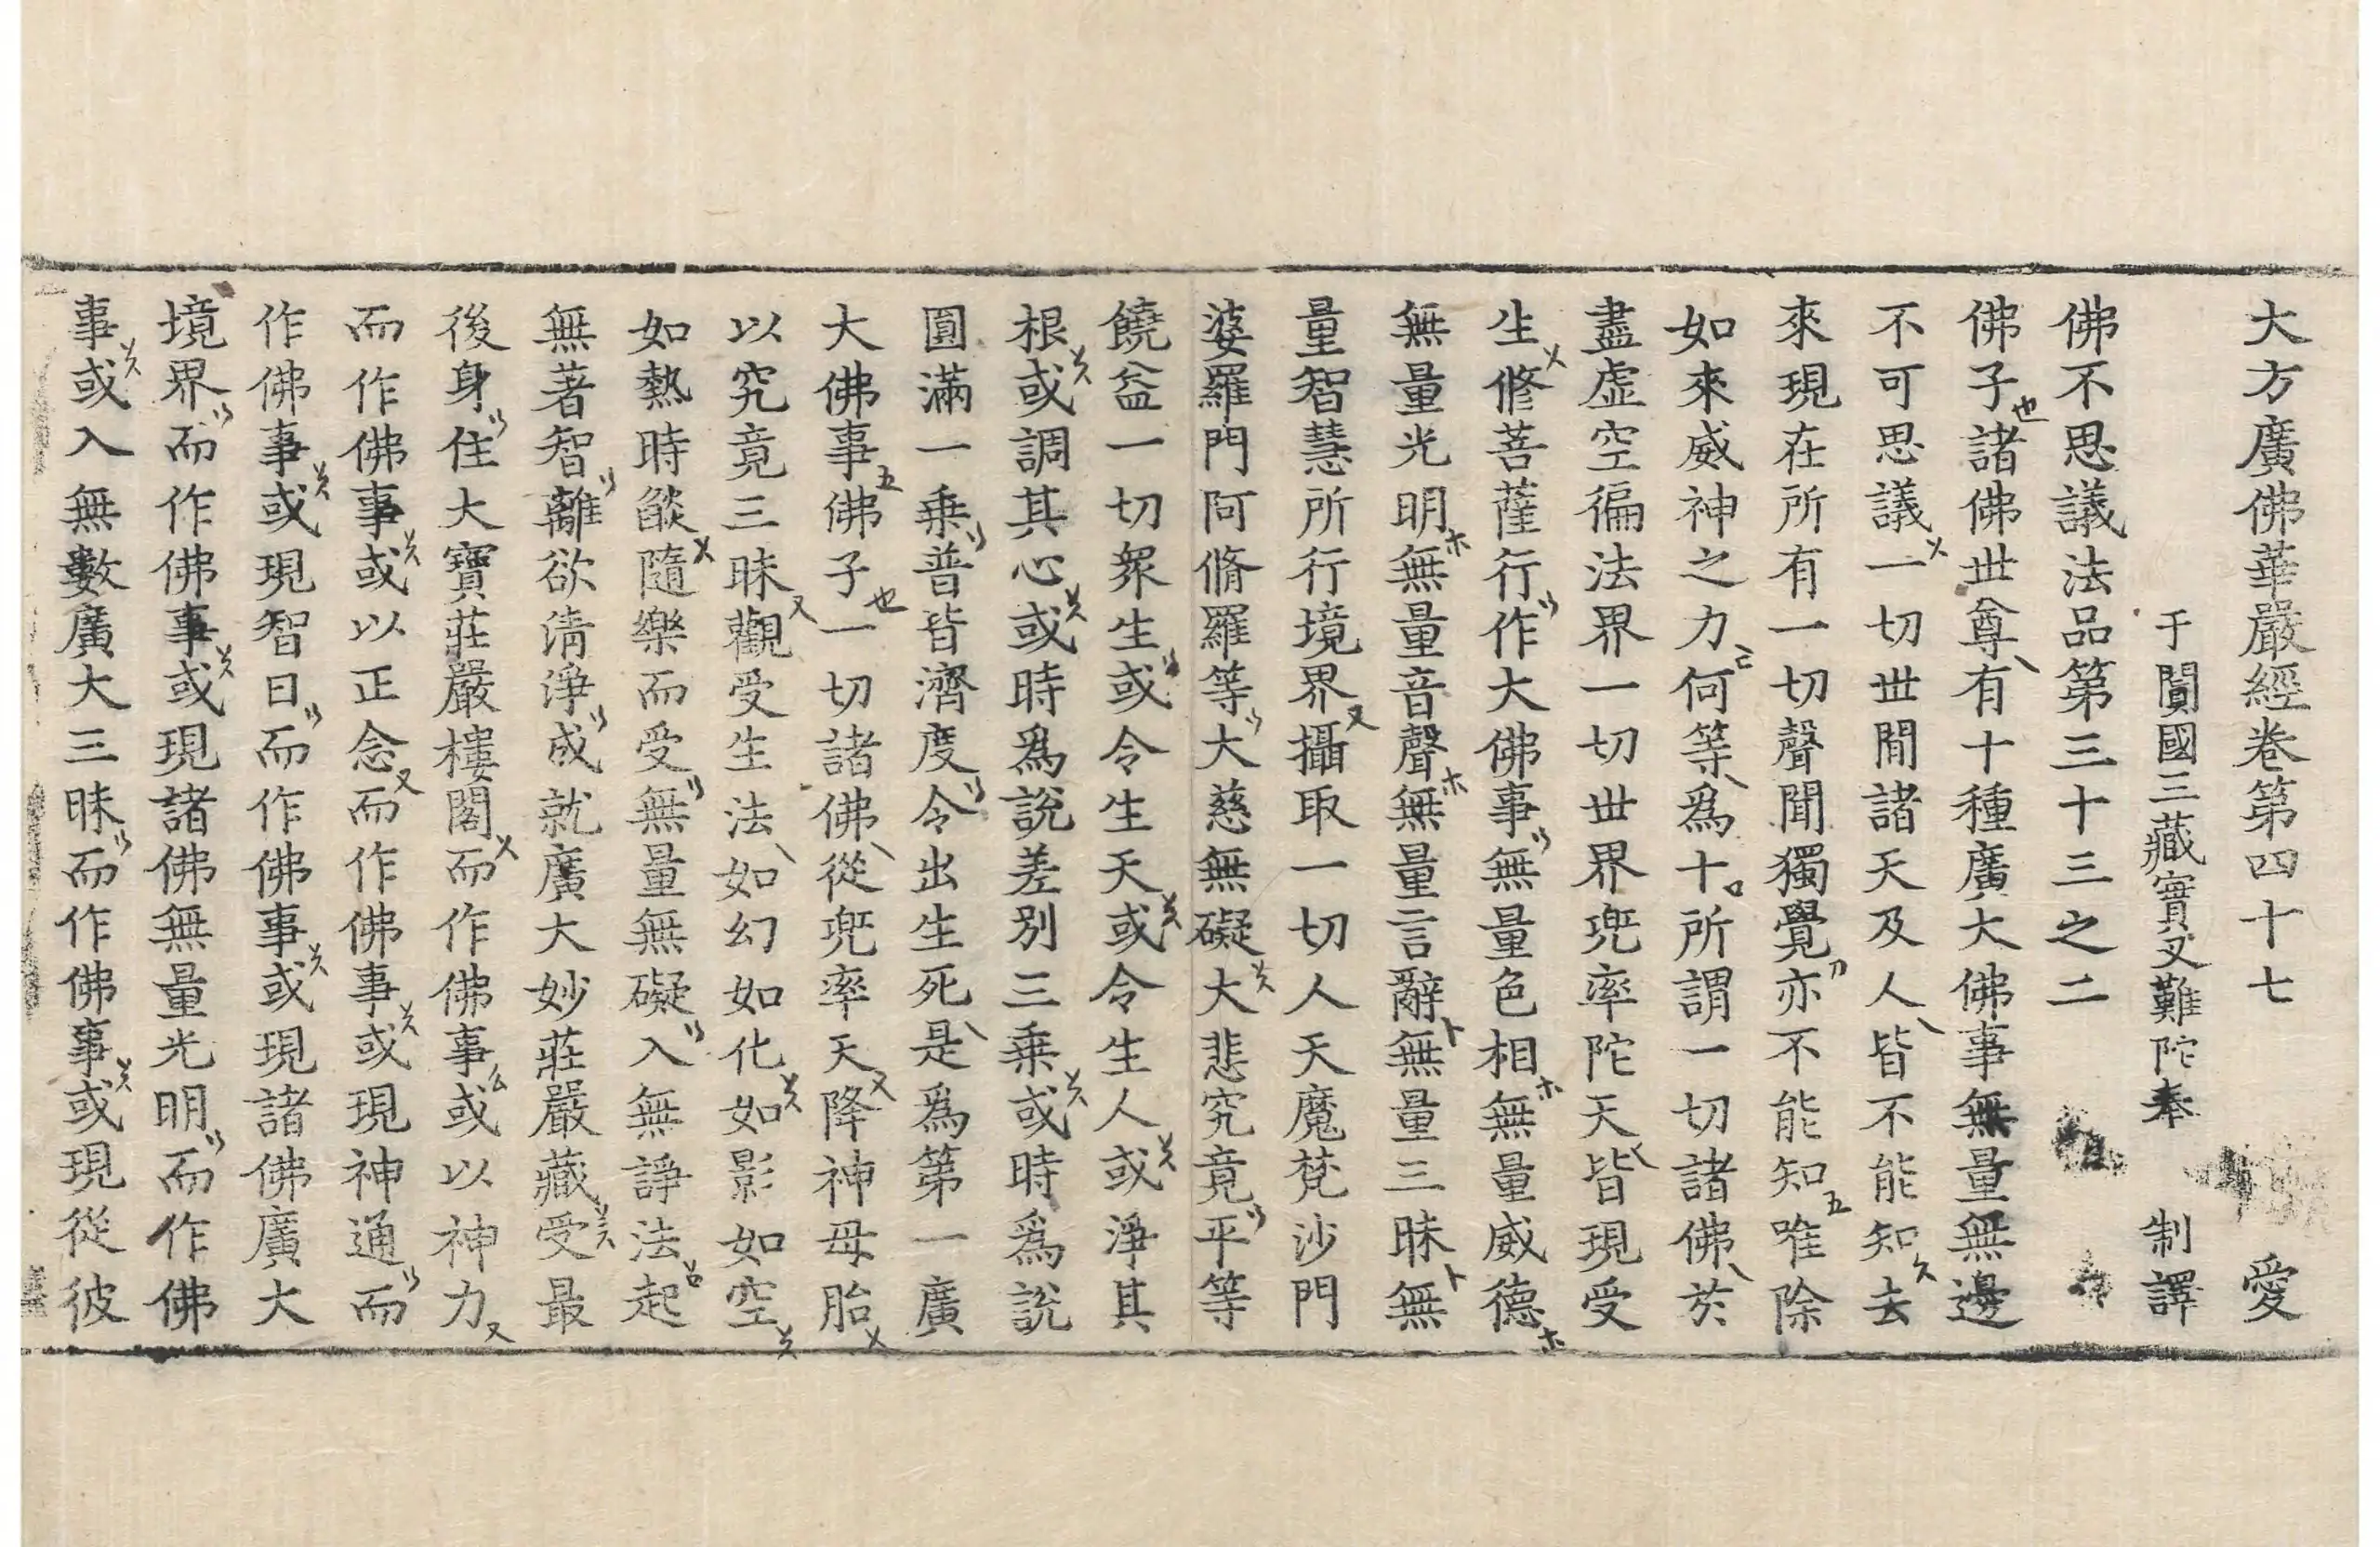 大方廣佛華嚴經卷第四十七 愛
于闐國三藏實叉難陀奉 制譯
佛不思議法品第三十三之二
佛子諸佛世尊有十種廣大佛事無量無邊
不可思議一切世間諸天及人皆不能知去
來現在所有一切聲聞獨覺亦不能知唯除
如來威神之力何等爲十所謂一切諸佛於
盡虛空徧法界一切世界兜率陀天皆現受
生修菩薩行作大佛事無量色相無量威德
無量光明無量音聲無量言辭無量三昧無
量智慧所行境界攝取一切人天魔梵沙門
婆羅門阿脩羅等大慈無礙大悲究竟平等
饒益一切衆生或令生天或令生人或淨其
根或調其心或時爲說差別三乗或時爲說
圓滿一乗普皆濟度令出生死是爲第一廣
大佛事佛子一切諸佛從兜率天降神母胎
以究竟三昧觀受生法如幻如化如影如空
如熱時燄隨樂而受無量無礙入無諍法起
無著智離欲清淨成就廣大妙莊嚴藏受最
後身住大寶莊嚴樓閣而作佛事或以神力
而作佛事或以正念而作佛事或現神通而
作佛事或現智日而作佛事或現諸佛廣大
境界而作佛事或現諸佛無量光明而作佛
事或入無數廣大三昧而作佛事或現從彼